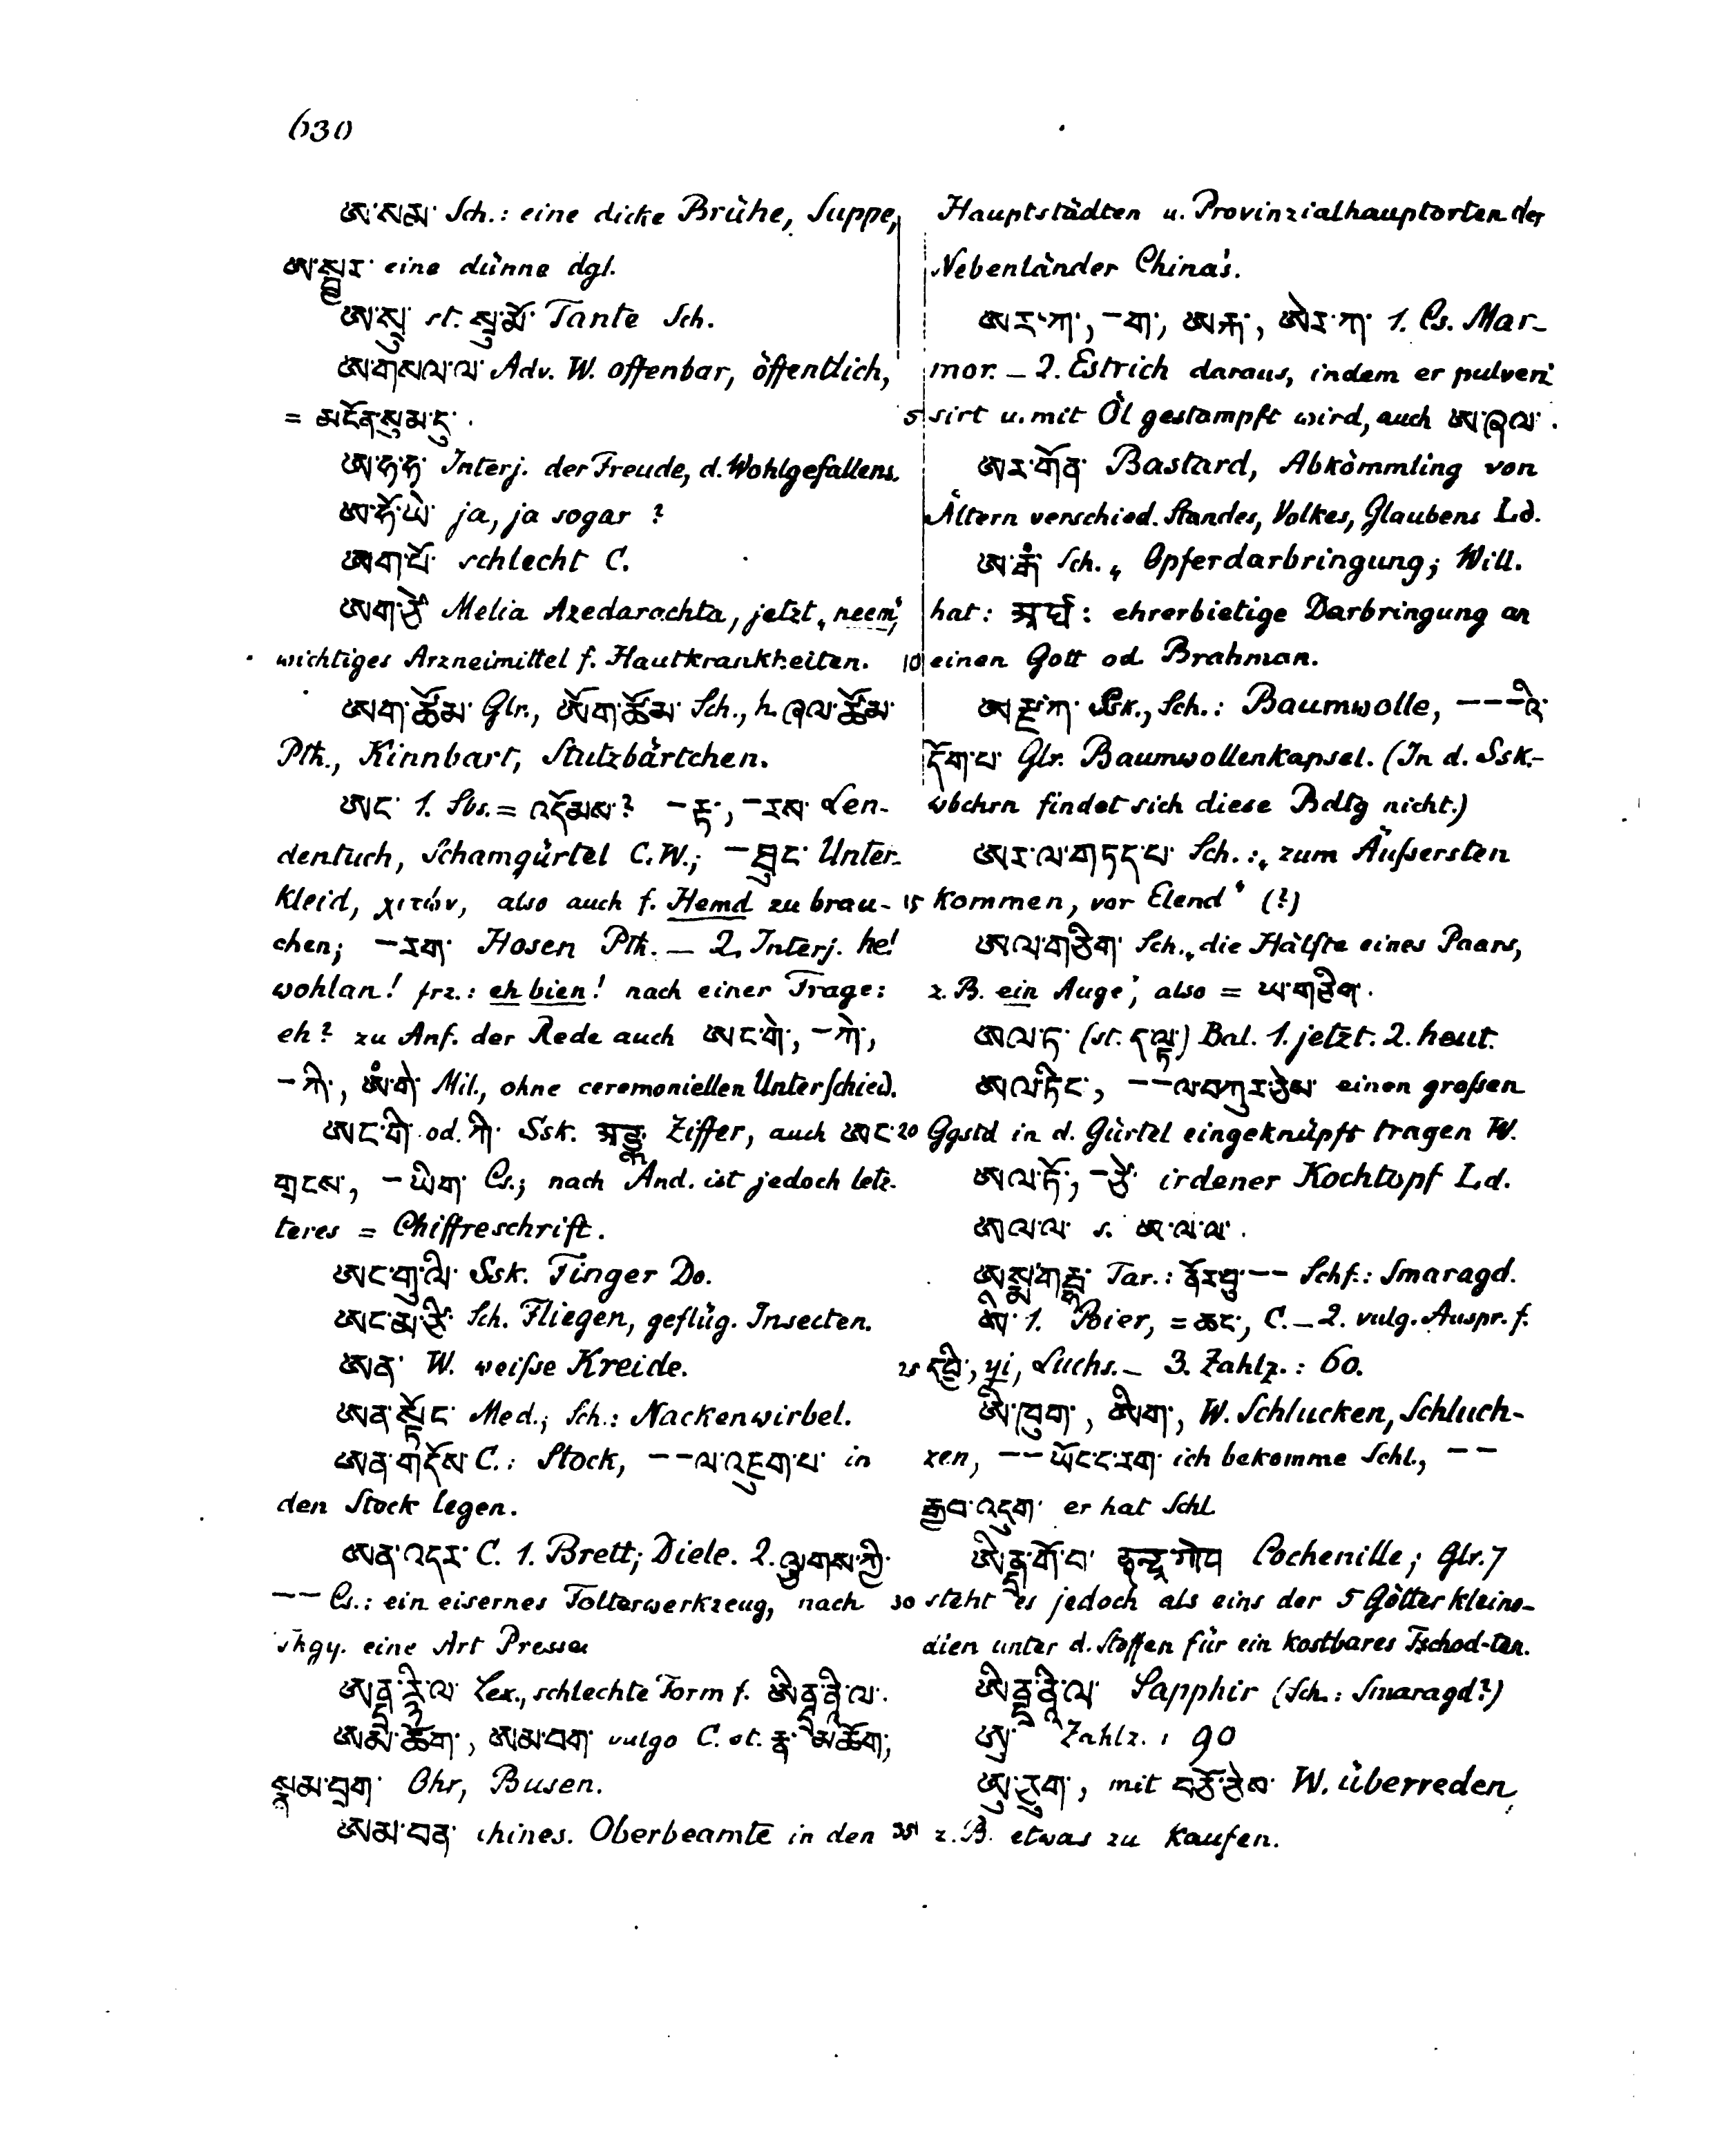 630
ཨ་སམ་ Sch.: eine dicke Brühe, Suppe,
ཨ་སྦྱར་ eine dünne dgl.
ཨ་སུ་ st. སྲུ་མོ་ Tante Sch.
ཨ་གསལ་ལ་ Adv. W. offenbar, öffentlich,
= མངོན་སུམ་དུ་.
ཨ་ཧ་ཧ་ Interj. der Freude, d. Wohlgefallens.
ཨ་ཧོ་ཡེ་ ja, ja sogar ?
ཨག་པོ་ schlecht C.
ཨག་ཙེ་ Melia Azedarachta, jetzt „neem“,
wichtiges Arzneimittel f. Hautkrankheiten.
ཨག་ཚོམ་ Glr., ཨོག་ཚོམ་ Sch., h. ཞལ་ཚོམ་
Pth., Kinnbart, Stutzbärtchen.
ཨང་ 1. Sbs. = འདོམས་? –རྟ་, –རས་ Len-
dentuch, Schamgürtel C.W.; –སྲུང་ Unter-
kleid, χιτών, also auch f. Hemd zu brau-
chen; –རག་ Hosen Pth. – 2. Interj. he!
wohlan! frz.: eh bien! nach einer Frage:
eh? zu Anf. der Rede auch ཨང་གེ་, –ཀེ་,
–ཀི་, ཨཾ་གེ་ Mil., ohne ceremoniellen Unterschied.
ཨང་གི་ od. ཀི་ Ssk. अङ्क Ziffer, auch ཨང་
གྲངས་, –ཡིག་ Cs.; nach And. ist jedoch letz-
teres = Chiffreschrift.
ཨང་གུ་ལི་ Ssk. Finger Do.
ཨང་མ་ཙེ་ Sch. Fliegen, geflüg. Insecten.
ཨན་ W. weisse Kreide.
ཨན་སྟོང་ Med.; Sch.: Nackenwirbel.
ཨན་གདོས་ C.: Stock, ––ལ་འཇུག་པ་ in
den Stock legen.
ཨན་འདར་ C. 1. Brett; Diele. 2. ལྕུགས་ཀྱི་
–– Cs.: ein eisernes Folterwerkzeug, nach
Thgy. eine Art Presse
ཨནྡྲ་རྙི་ལ་ Lex., schlechte Form f. ཨིནྡྲ་ནཱི་ལ་.
ཨམ་ཆོག་, ཨམ་བག་ vulgo C. st. རྣ་མཆོག་,
སྣམ་བྲག་ Ohr, Busen.
ཨམ་བན་ chines. Oberbeamte in den
Hauptstädten u. Provinzialhauptorten der
Nebenländer China's.
ཨར་ཀ་, –ག་, ཨརྐ་, ཨེར་ཀ་ 1. Cs. Mar-
mor. – 2. Estrich daraus, indem er pulveri
5 sirt u. mit Öl gestampft wird, auch ཨ་ཞལ་.
ཨར་གོན་ Bastard, Abkömmling von
Ältern verschied. Standes, Volkes, Glaubens Ld.
ཨ་རྒཾ་ Sch. „Opferdarbringung; Will.
hat: अर्घ: ehrerbietige Darbringung an
10 einen Gott od. Brahman.
ཨརྫ་ཀ་ Ssk., Sch.: Baumwolle, –––འི་
དོག་པ་ Glr. Baumwollenkapsel. (In d. Ssk.-
wbchrn findet sich diese Bdtg nicht.)
ཨར་ལ་གཏད་པ་ Sch.: „zum Äussersten
15 kommen, vor Elend“ (?)
ཨལ་གཅིག་ Sch. „die Hälfte eines Paars,
z. B. ein Auge“, also = ཡ་གཅིག་.
ཨལ་ཏ་ (st. ད་ལྟ་) Bal. 1. jetzt. 2. heut.
ཨལ་ཏིང་, ––ལ་བཀུར་ཅེས་ einen grossen
20 Ggstd in d. Gürtel eingeknüpft tragen W.
ཨལ་ཏོ་, –ཙེ་ irdener Kochtopf Ld.
ཨལ་ལ་ s. ཨ་ལ་ལ་.
ཨསྨ་གརྦྷ་ Tar.: ནོར་བུ་–– Schf.: Smaragd.
ཨི་ 1. Bier, = ཆང་, C. – 2. vulg. Auspr. f.
25 དབྱི་, yi, Luchs. – 3. Zahlz.: 60.
ཨི་ཁུག་, ཨིག་, W. Schlucken, Schluch-
xen, –– ཡོང་ང་རག་ ich bekomme Schl., ––
རྒྱབ་འདུག་ er hat Schl.
ཨིནྡྲ་གོ་པ་ इन्द्रगोप Cochenille; Glr. 7
30 steht es jedoch als eins der 5 Götterkleino-
dien unter d. Stoffen für ein kostbares Tschod-ten.
ཨིནྡྲ་ནཱི་ལ་ Sapphir (Sch.: Smaragd?)
ཨུ་ Zahlz.: 90
ཨུ་ཙུག་, mit བཅོ་ཅེས་ W. überreden,
35 z. B. etwas zu kaufen.